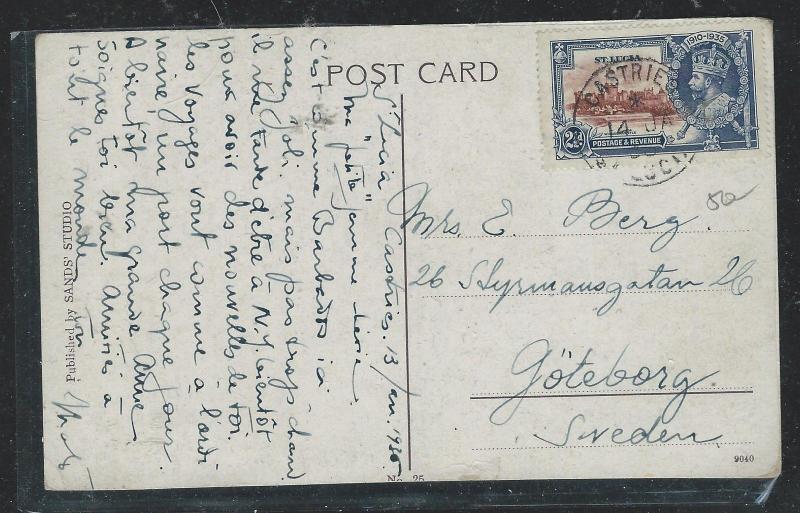 POST CARD
St Lucia Castries. 13/
ma "petite" femme chérie.
C'est comme Barbados ici
assez joli, mais pas trop chaud
il me tarde d'être à N.Y. bientôt
pour avoir des nouvelles de toi.
les voyages vont comme à l'ordi
naire, un port chaque jour.
A bientôt ma grande
Soignes toi bien. Amitiés à
tout le monde
Published by SANDS' STUDIO
No. 25
1910-1935
ST. LUCIA
2½d
POSTAGE & REVENUE
CASTRIES
14 JA
ST LUCIA
50
Mrs. E. Berg.
26 Styrmansgatan 26
Göteborg
Sweden
9040